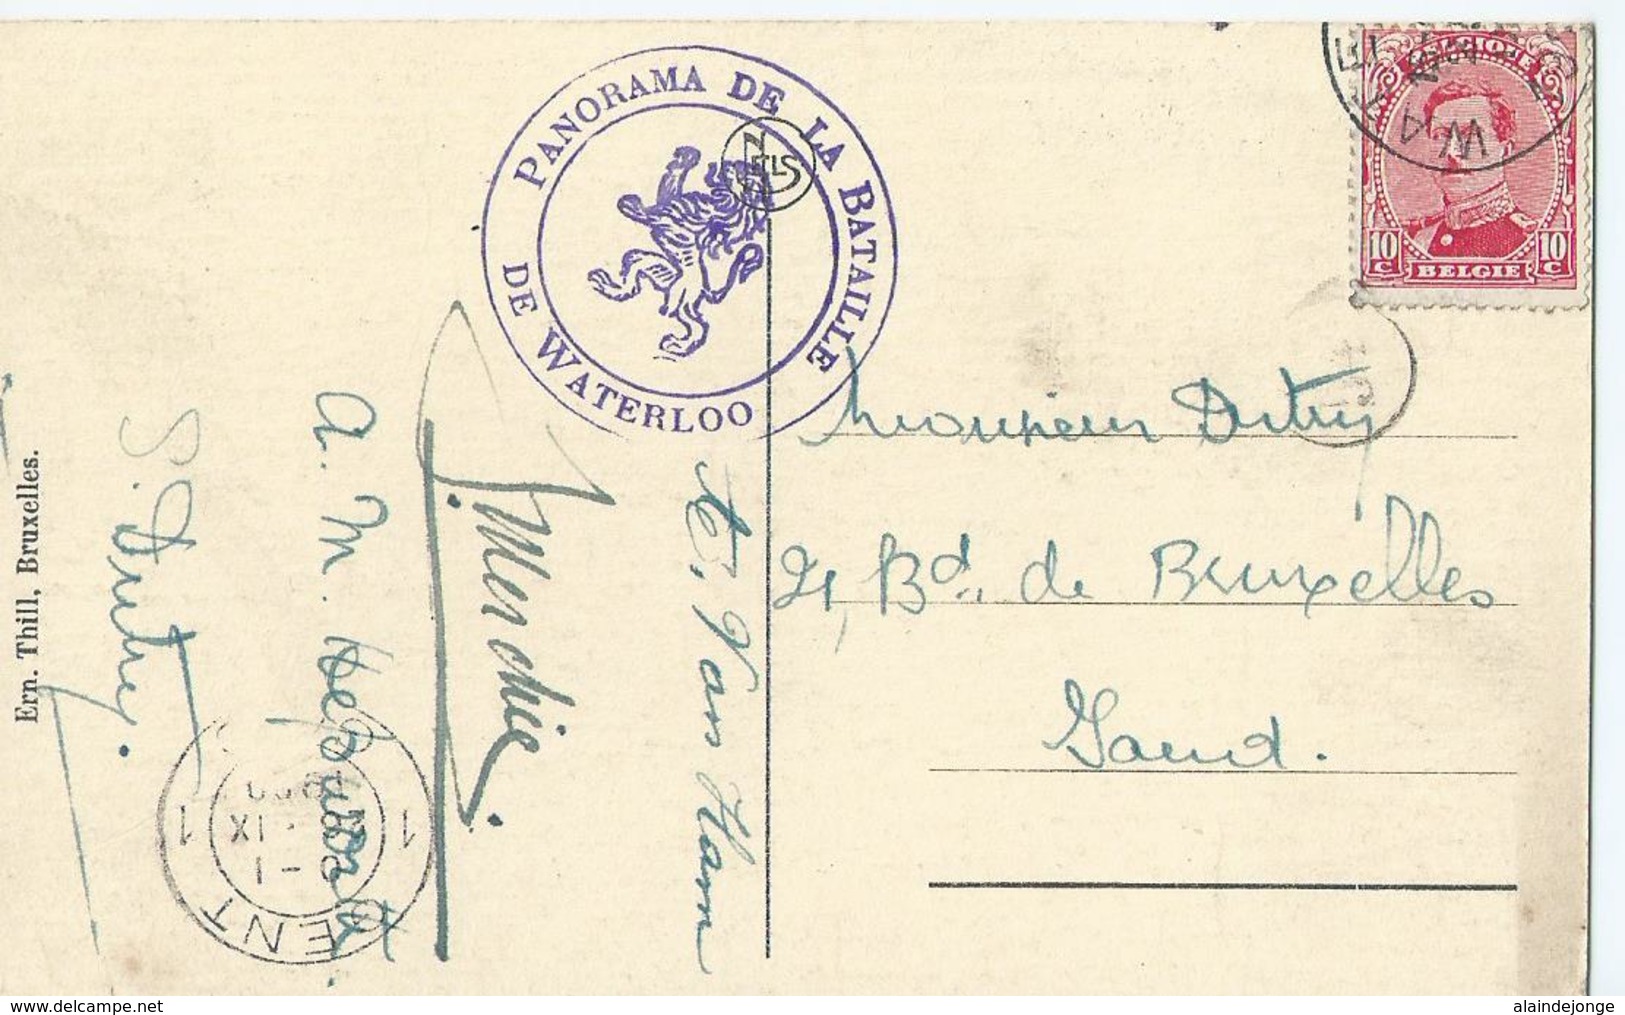 PANORAMA DE LA BATAILLE
DE WATERLOO
NELS
BELGIQUE
10 C
10 C
BELGIE
Monsieur Dutry
Bd. de Bruxelles
Gand.
E. Van Ham
J. Merchie.
A. M.
S. Dutry.
GENT
1
1
IX
Ern. Thill, Bruxelles.
www.delcampe.net
alaindejonge